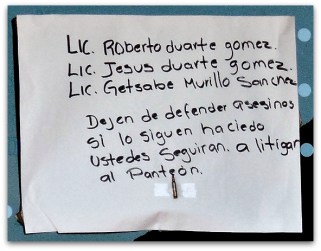 Lic. Roberto duarte gomez.
Lic. Jesus duarte gomez.
Lic. Getsabe Murillo Sanchez
Dejen de defender asesinos
si lo siguen haciedo
ustedes Seguiran. a litigar
al Panteón.